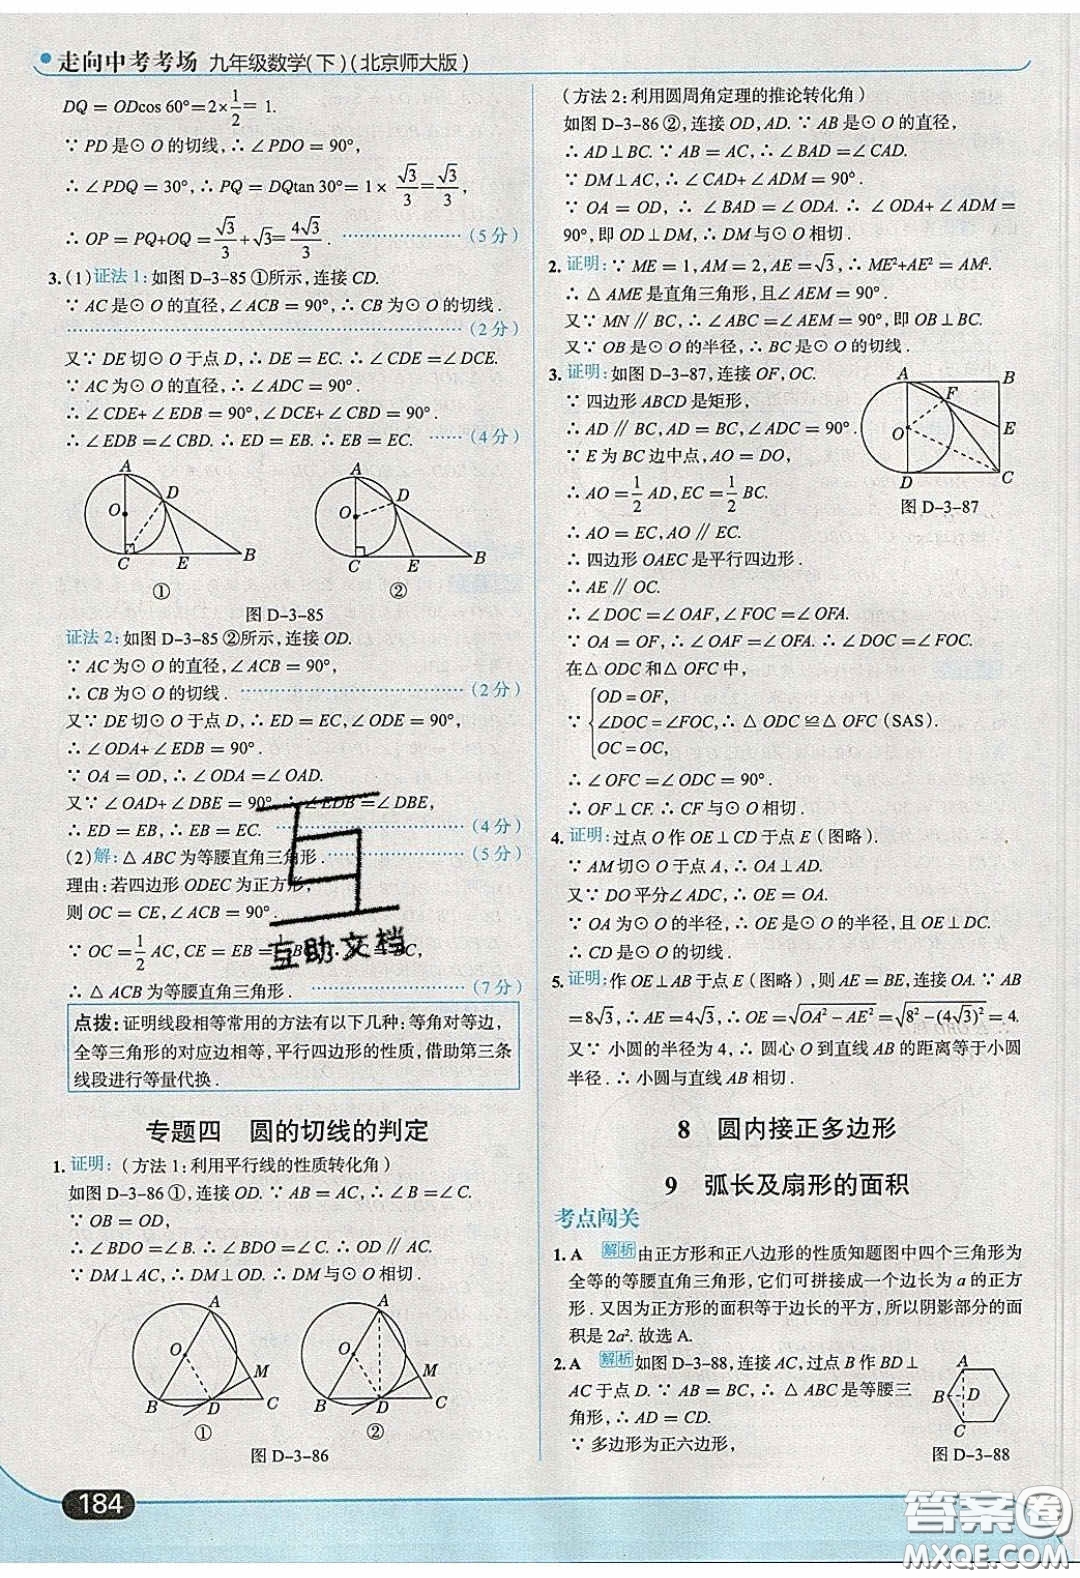 走向中考考场 九年级数学(下)(北京师大版)
DQ = ODcos 60°=2×1/2= 1.
∵ PD 是⊙O 的切线,∴∠PDO = 90°,
∴∠PDQ = 30°,∴ PQ = DQtan 30°= 1× √3/3=√3/3,
∴ OP = PQ+OQ =√3/3+√3=4√3/3. (5分)
3.(1)证法1:如图 D-3-85 ①所示,连接 CD.
∵ AC 是⊙O 的直径,∠ACB = 90°,∴ CB 为⊙O 的切线.
(2分)
又∵ DE 切⊙O 于点 D,∴ DE = EC. ∴∠CDE =∠DCE.
∵ AC 为⊙O 的直径,∴∠ADC = 90°.
∴∠CDE+∠EDB = 90°,∠DCE+∠CBD = 90°.
∴∠EDB =∠CBD. ∴ ED = EB. ∴ EB = EC. (4分)
A
O
D
C
E
B
①
A
O
D
C
E
B
②
图 D-3-85
证法2:如图 D-3-85 ②所示,连接 OD.
∵ AC 为⊙O 的直径,∠ACB = 90°,
∴ CB 为⊙O 的切线. (2分)
又∵ DE 切⊙O 于点 D,∴ ED = EC,∠ODE = 90°,
∴∠ODA+∠EDB = 90°.
∵ OA = OD,∴∠ODA =∠OAD.
又∵∠OAD+∠DBE = 90°,∴∠EDB =∠DBE,
∴ ED = EB,∴ EB = EC. (4分)
(2)解:△ABC 为等腰直角三角形. (5分)
理由:若四边形 ODEC 为正方形,
则 OC = CE,∠ACB = 90°.
∵ OC =1/2 AC,CE = EB =
∴△ACB 为等腰直角三角形. (7分)
点拨:证明线段相等常用的方法有以下几种:等角对等边,
全等三角形的对应边相等,平行四边形的性质,借助第三条
线段进行等量代换.
专题四 圆的切线的判定
1. 证明:(方法1:利用平行线的性质转化角)
如图 D-3-86 ①,连接 OD. ∵ AB = AC,∴∠B =∠C.
∵ OB = OD,
∴∠BDO =∠B. ∴∠BDO =∠C. ∴ OD∥AC.
∵ DM⊥AC,∴ DM⊥OD. ∴ DM 与⊙O 相切.
A
O
M
B
D
C
①
A
O
M
B
D
C
②
图 D-3-86
184
(方法2:利用圆周角定理的推论转化角)
如图 D-3-86 ②,连接 OD,AD. ∵ AB 是⊙O 的直径,
∴ AD⊥BC. ∵ AB = AC,∴∠BAD =∠CAD.
∵ DM⊥AC,∴∠CAD+∠ADM = 90°.
∵ OA = OD,∴∠BAD =∠ODA. ∴∠ODA+∠ADM =
90°,即 OD⊥DM,∴ DM 与⊙O 相切.
2. 证明:∵ ME = 1,AM = 2,AE =√3,∴ ME²+AE² = AM².
∴△AME 是直角三角形,且∠AEM = 90°.
又∵ MN∥BC,∴∠ABC =∠AEM = 90°,即 OB⊥BC.
又∵ OB 是⊙O 的半径,∴ BC 是⊙O 的切线.
3. 证明:如图 D-3-87,连接 OF,OC.
∵ 四边形 ABCD 是矩形,
∴ AD∥BC,AD = BC,∠ADC = 90°.
∵ E 为 BC 边中点,AO = DO,
∴ AO =1/2 AD,EC =1/2 BC.
∴ AO = EC,AO∥EC.
∴ 四边形 OAEC 是平行四边形.
∴ AE∥OC.
∴∠DOC =∠OAF,∠FOC =∠OFA.
∵ OA = OF,∴∠OAF =∠OFA. ∴∠DOC =∠FOC.
在△ODC 和△OFC 中,
OD = OF,
∵ ∠DOC =∠FOC,∴△ODC≌△OFC(SAS).
OC = OC,
∴∠OFC =∠ODC = 90°.
∴ OF⊥CF. ∴ CF 与⊙O 相切.
A
B
F
O
E
D
C
图 D-3-87
4. 证明:过点 O 作 OE⊥CD 于点 E(图略).
∵ AM 切⊙O 于点 A,∴ OA⊥AD.
又∵ DO 平分∠ADC,∴ OE = OA.
∵ OA 为⊙O 的半径,∴ OE 为⊙O 的半径,且 OE⊥DC.
∴ CD 是⊙O 的切线.
5. 证明:作 OE⊥AB 于点 E(图略),则 AE = BE,连接 OA. ∵ AB
=8√3,∴ AE = 4√3,∴ OE=√(OA²−AE²)=√(8²−(4√3)²)= 4.
又∵ 小圆的半径为 4,∴ 圆心 O 到直线 AB 的距离等于小圆
半径.∴ 小圆与直线 AB 相切.
8 圆内接正多边形
9 弧长及扇形的面积
考点闯关
1. A 解析 由正方形和正八边形的性质知题图中四个三角形为
全等的等腰直角三角形,它们可拼接成一个边长为 a 的正方
形.又因为正方形的面积等于边长的平方,所以阴影部分的面
积是 2a². 故选 A.
2. A 解析 如图 D-3-88,连接 AC,过点 B 作 BD⊥
AC 于点 D. ∵ AB = BC,∴△ABC 是等腰三
角形,∴ AD = CD.
∵ 多边形为正六边形,
A
B
D
C
图 D-3-88
互助文档
答案圈
MXQE.COM